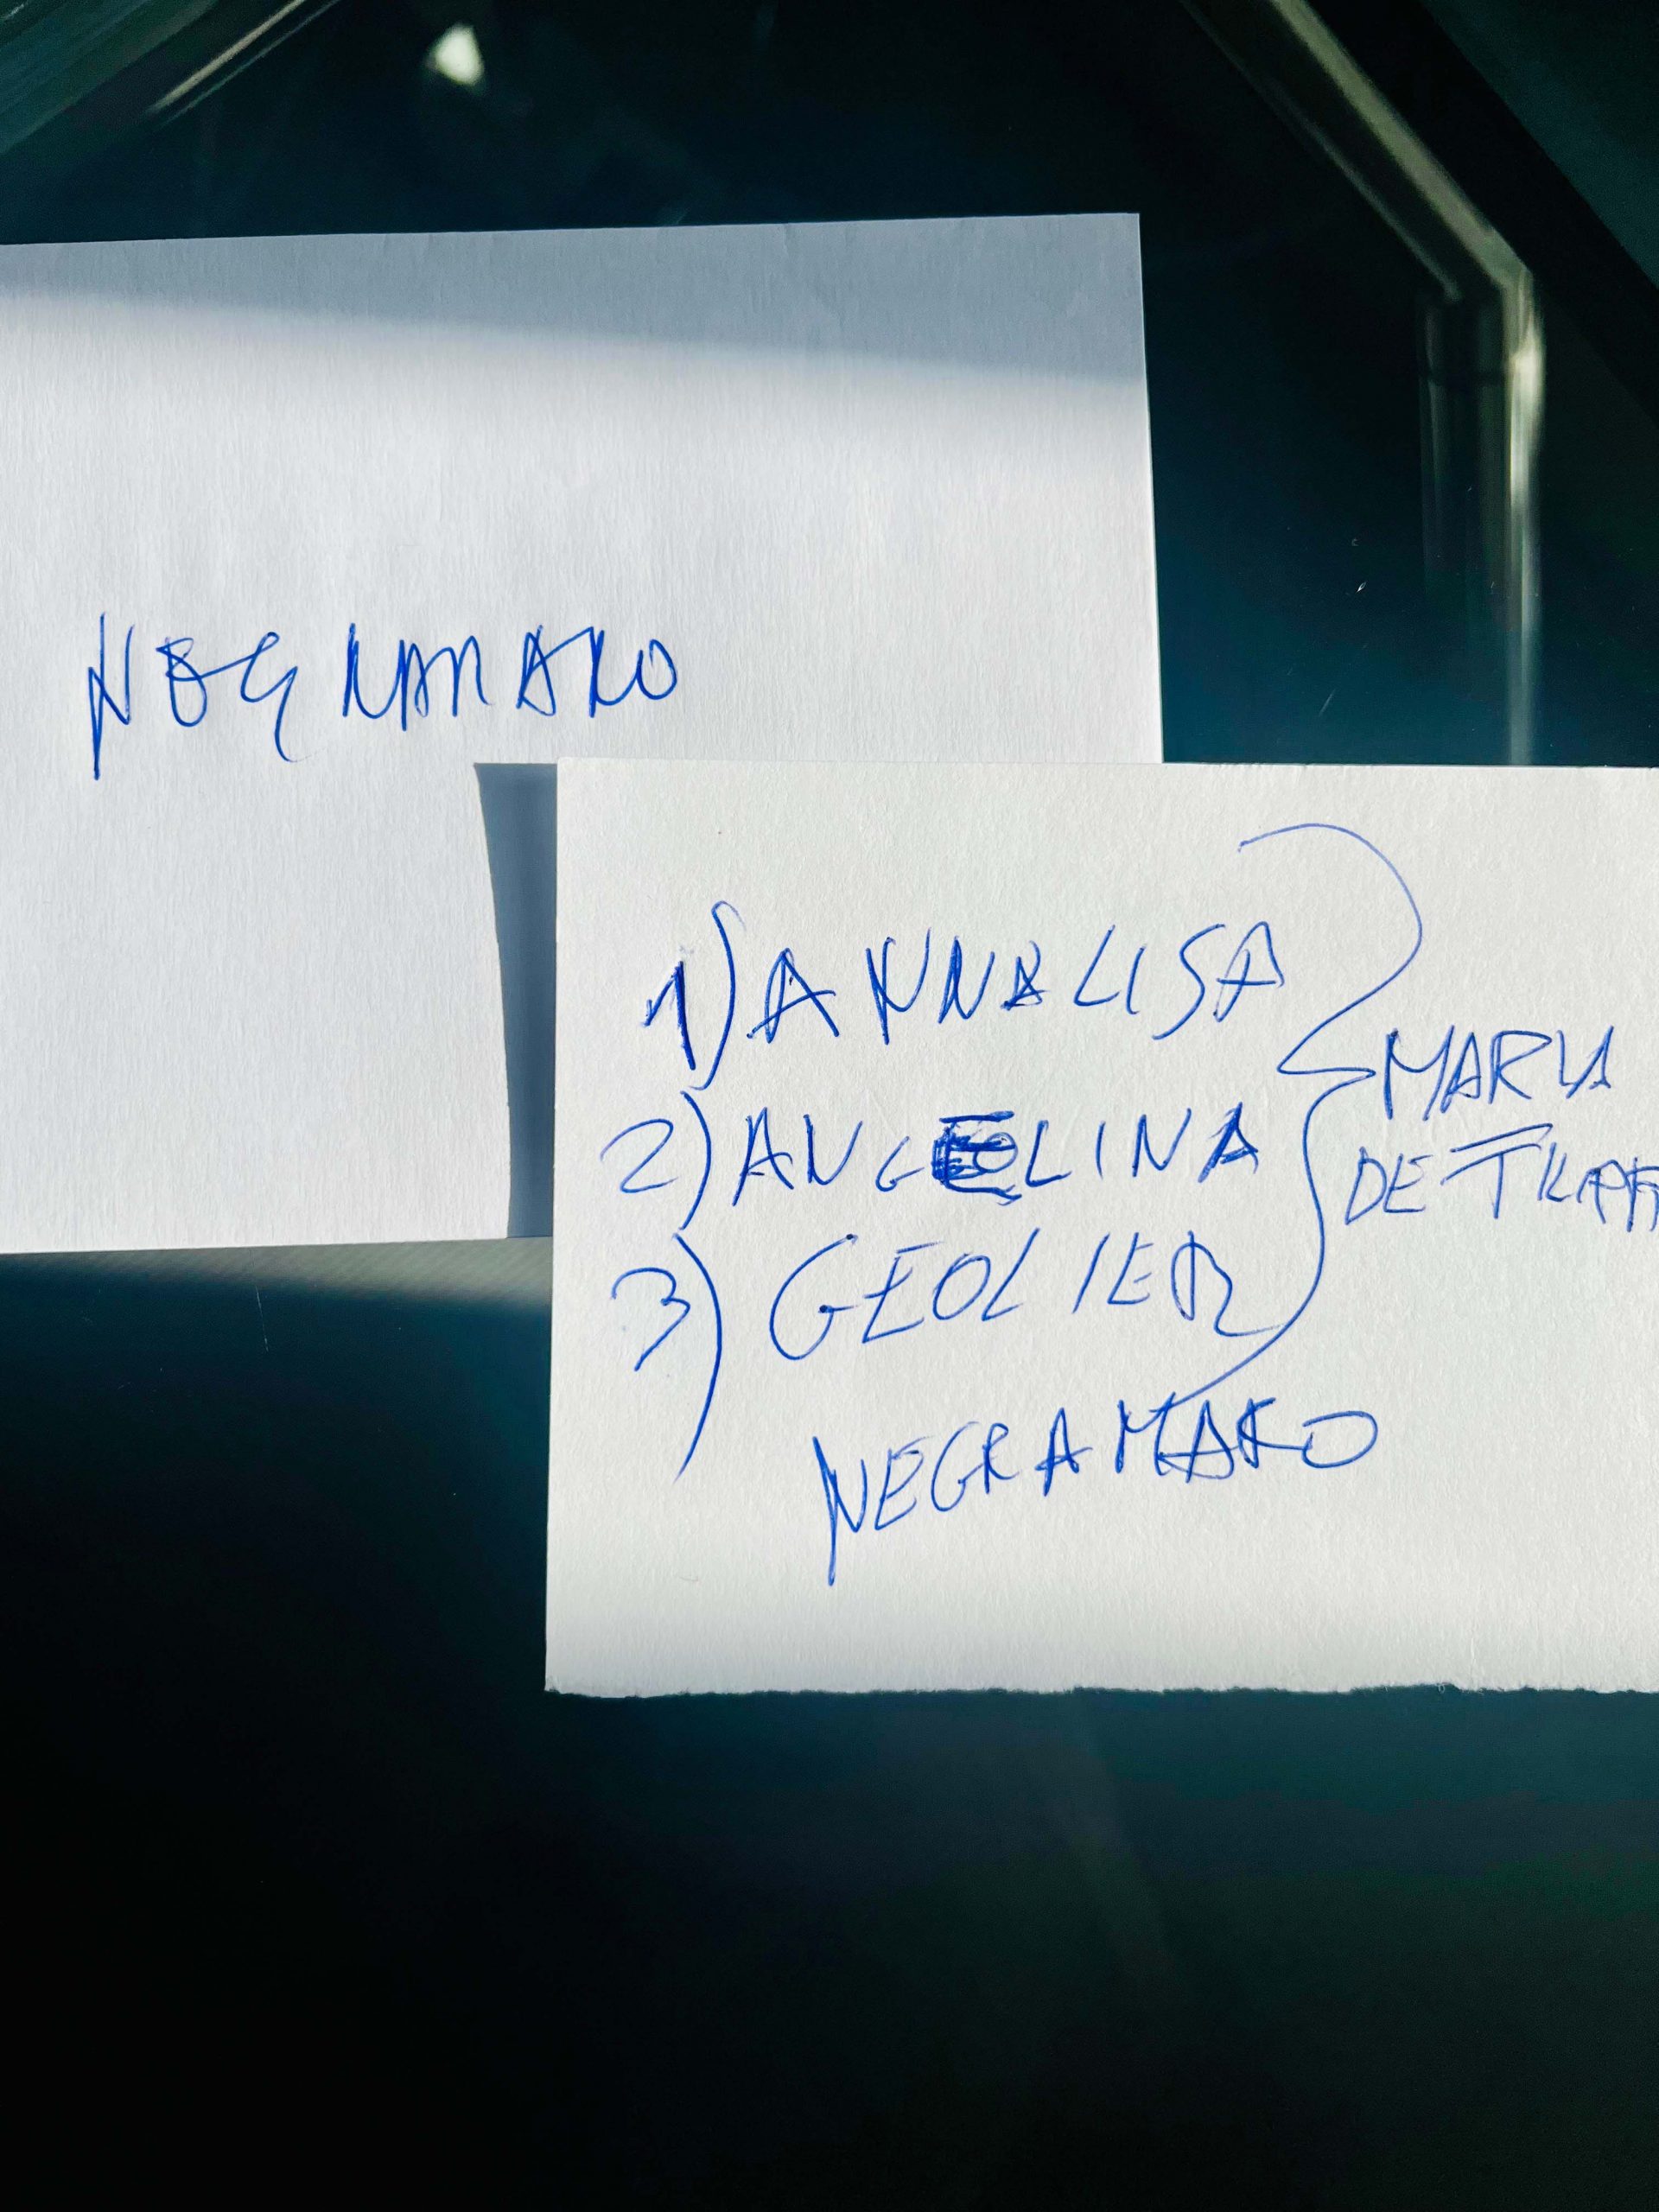 NEGRAMARO
1) ANNALISA
2) ANGELINA
3) GEOLIER
NEGRAMARO
MARIA
DE